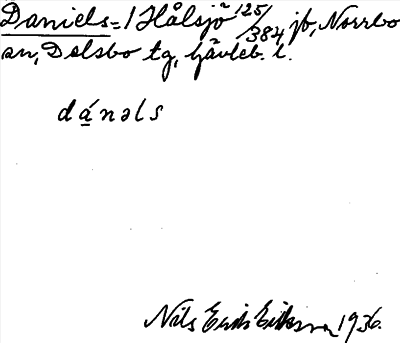 Daniels = 1 Hålsjö 125/384 jb, Norrbo
sn, Delsbo tg, Gävleb. l.
dánəls
Nils Erik Eriksson 1936.